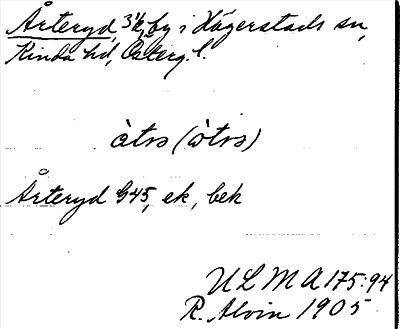 Årteryd, 3/4, by i Hägerstads sn,
Kinda hd, Österg. l.
àtro (òtro)
Årteryd G45, ek, bek
ULMA 175:94
R. Alvin 1905